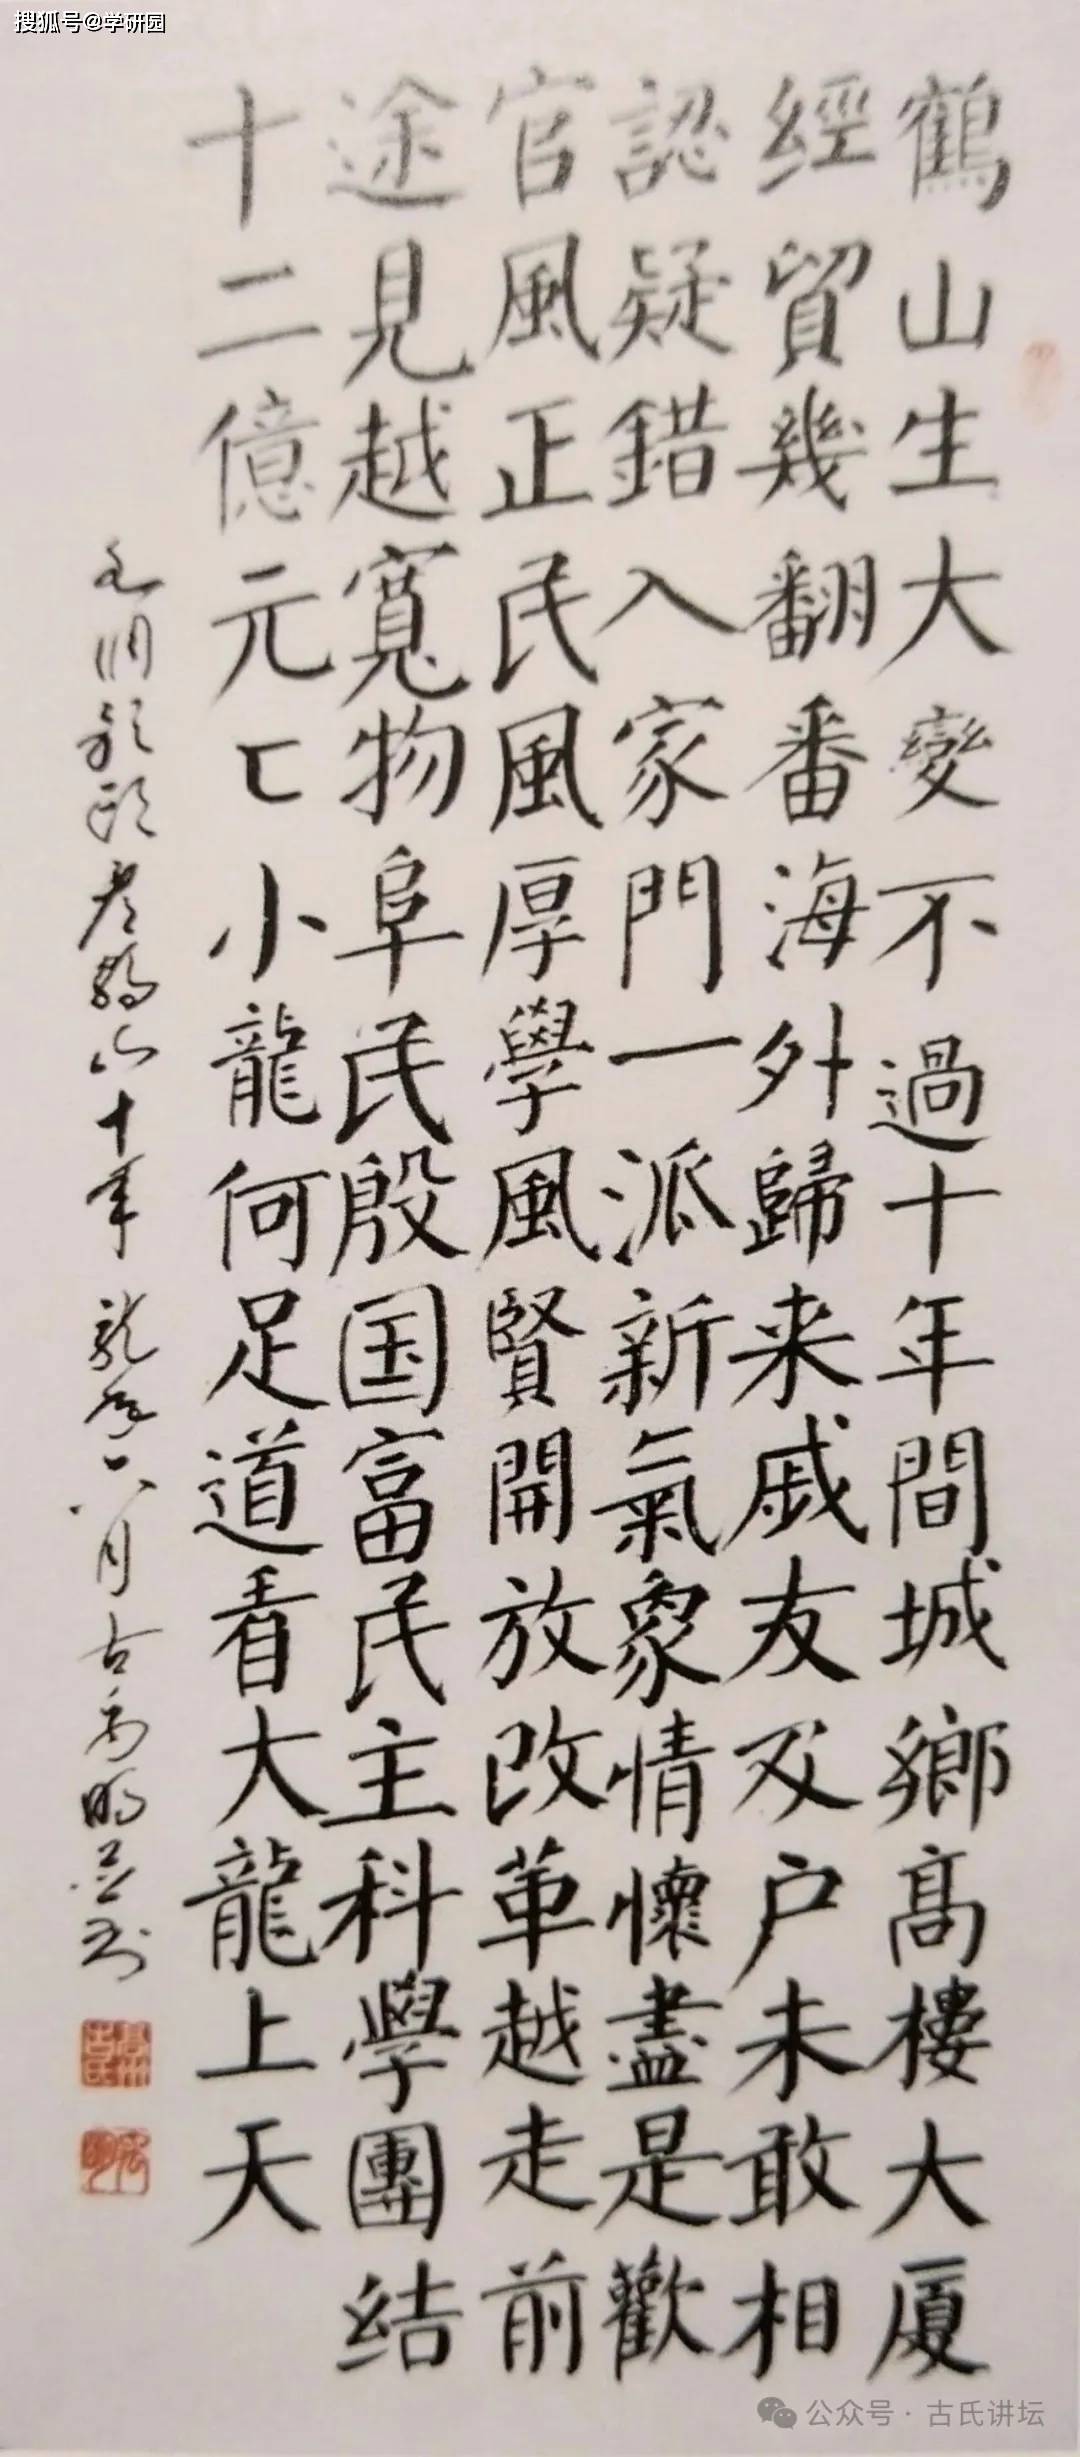 搜狐号@学研园
鶴山生大變不過十年間城鄉高樓大厦
經貿幾翻番海外歸来戚友户未敢相
認疑錯入家門一派新氣象情懷盡是歡
官風正民風厚學風賢開放改革越走前
途見越寬物阜民殷国富民主科學團结
十二億元小龍何足道看大龍上天
歌頭鶴山十年 龍年六月古明並书
公众号·古氏讲坛